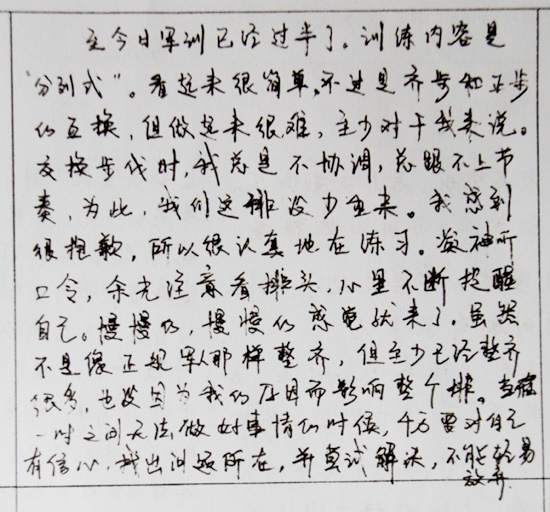 至今日军训已经过半了。训练内容是
“分列式”。看起来很简单,不过是齐步和正步
的互换,但做起来很难,至少对于我来说。
交换步伐时,我总是不协调,总跟不上节
奏,为此,我们这排没少重来。我感到
很抱歉,所以很认真地在练习。凝神听
口令,余光注意看排头,心里不断提醒
自己。慢慢的,慢慢的感觉就来了,虽然
不是像正规军队那样整齐,但至少已经整齐
很多,也没因为我的原因而影响整个排。当在
一时之间无法做好事情的时候,千万要对自己
有信心,找出问题所在,并尝试解决,不能轻易
放弃